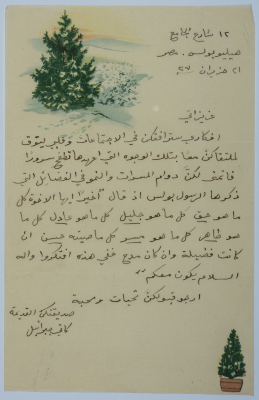 ١٢ شارع مجامع
هيليوبوليس. مصر
٢١ حزيران ٢٧
عزيزاتي
افكاري سترافقكن في الاجتماعات وقلبي يتوق
لملتقاكن معا بتلك الوجوه التي اريدها تطفح سرورا
فاتمنى لكنّ دوام المسرات والنمو في الفضائل التي
ذكرها الرسول بولس اذ قال "اخيرا ايها الاخوة كل
ما هو حق كل ما هو جليل كل ما هو عادل كل ما
هو طاهر كل ما هو مسر كل ما صيته حسن ان
كانت فضيلة وان كان مدح ففي هذه افتكروا واله
السلام يكون معكم"
ارجو قبولكن تحيات ومحبة
صديقتكن القديمة